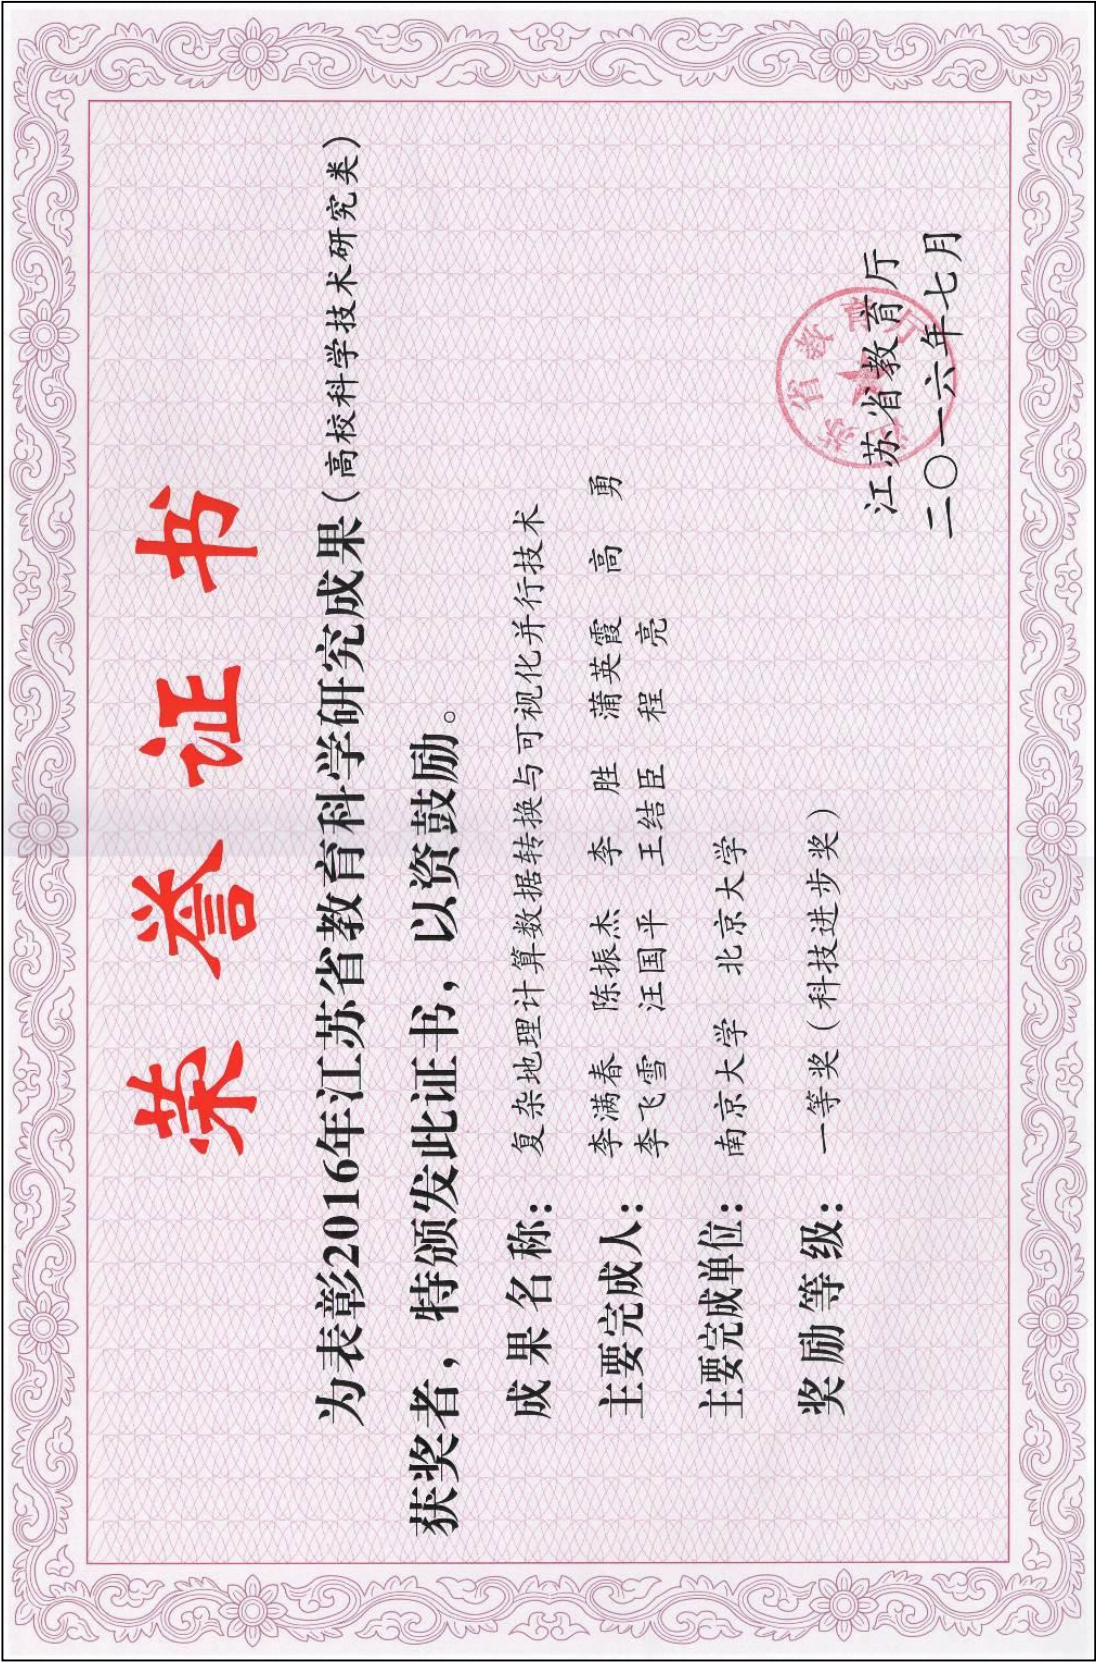 荣誉证书
为表彰2016年江苏省教育科学研究成果（高校科学技术研究类）
获奖者，特颁发此证书，以资鼓励。
成果名称：复杂地理计算数据转换与可视化并行技术
主要完成人：李满春 陈振杰 李胜 蒲英霞 高勇
李飞雪 汪国平 王结臣 程亮
主要完成单位：南京大学 北京大学
奖励等级：一等奖（科技进步奖）
江苏省教育厅
二〇一六年七月
江苏省教育厅